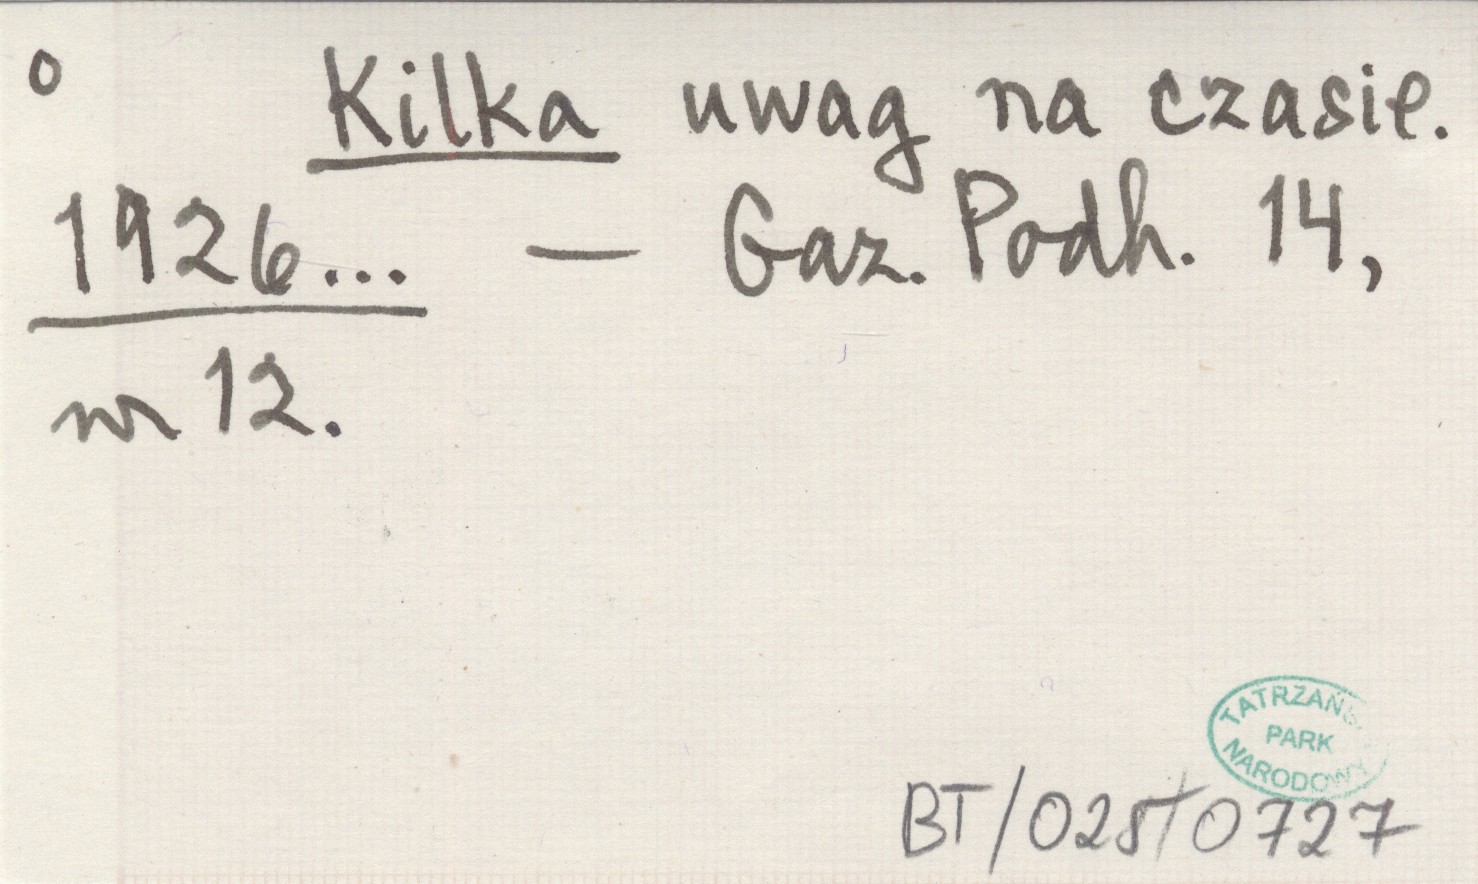 o Kilka uwag na czasie.
1926... — Gaz. Podh. 14,
nr 12.
TATRZAŃS
PARK
NARODOWY
BT/025/0727